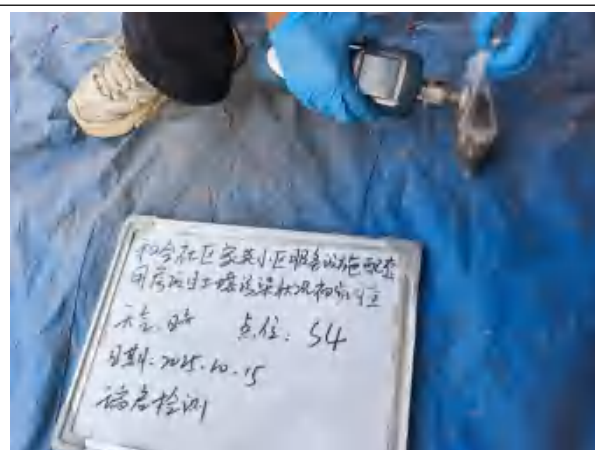 和合社区家英小区服务设施配套
用房项目土壤污染状况初步调查
天气:晴 点位:S4
日期:2025.10.15